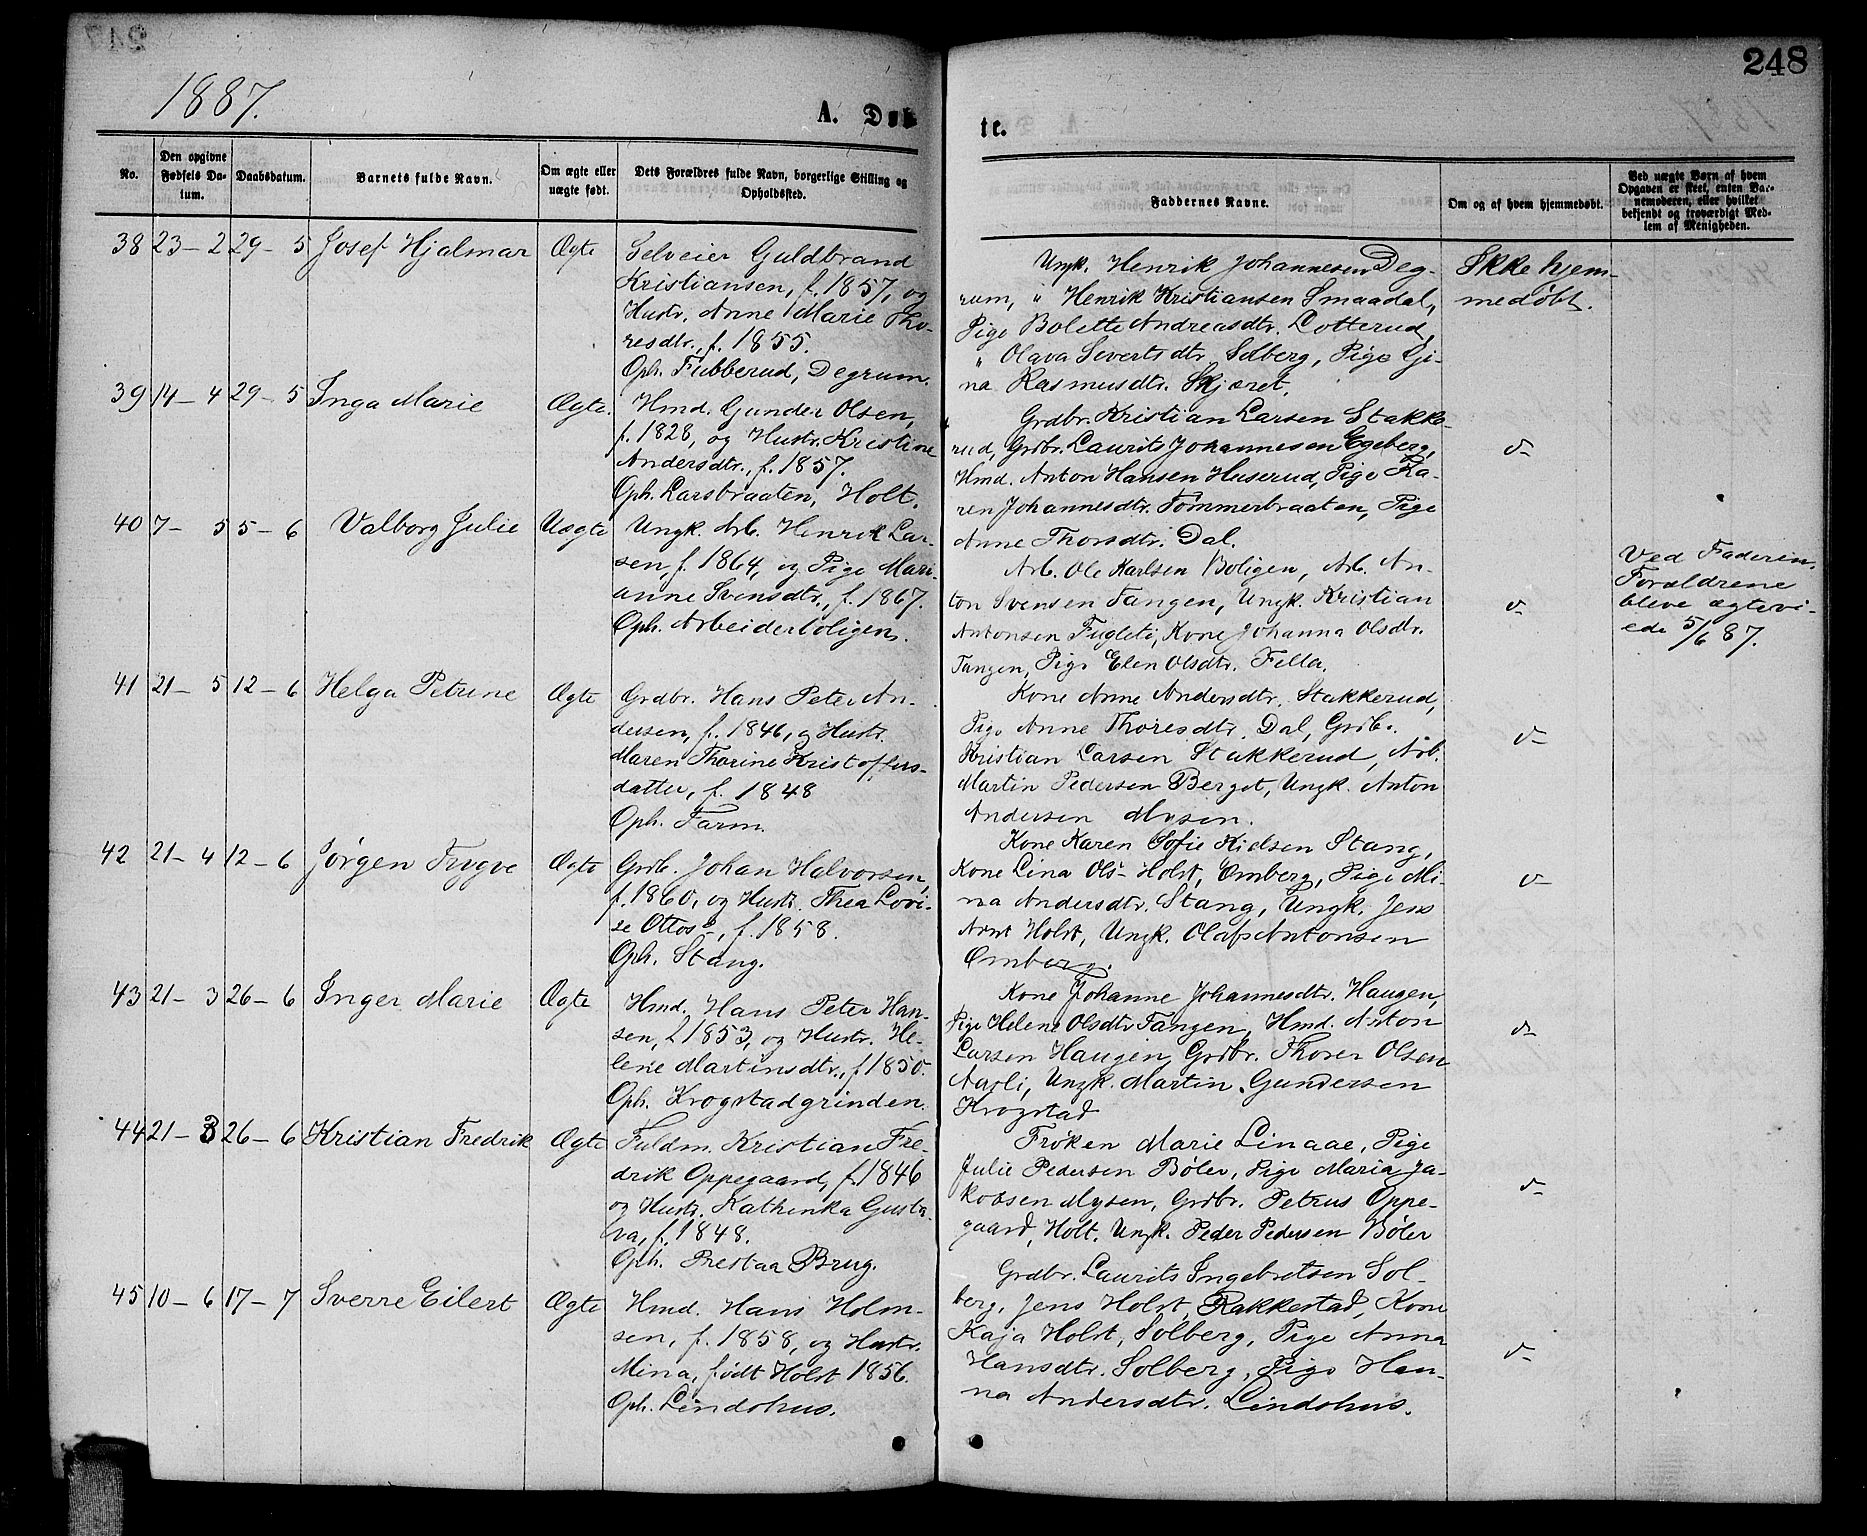 248
1887.
A. Døb
te.
No.
Den opgivne Fødsels Da-
tum.
Daabsdatum.
Barnets fulde Navn.
Om ægte eller
uægte født.
Dets Forældres fulde Navn, borgerlige Stilling og
Opholdssted.
Faddernes Navne.
Om og af hvem hjemmedøbt.
Ved uægte Børn af hvem
Opgaven er skeet, enten Bar-
nemoderen, eller hvilket
bekjendt og troværdigt Med-
lem af Menigheden.
38 23-2 29-5 Josef Hjalmar Ægte
Selveier Guldbrand
Kristiansen, f. 1857, og
Hustr. Anne Marie Tho-
resdtr., f. 1855.
Oph. Fubberud, Degrum.
Ungk. Henrik Johannesen Deg-
rum, " Henrik Kristiansen Smaadal,
Pige Bolette Andreasdtr. Lotterud,
" Olava Severtsdtr. Solberg, Pige Gi-
na Rasmusdtr. Skjæret.
Ikke hjem-
medøbt.
39 14-4 29-5 Inga Marie Ægte.
Hmd. Gunder Olsen,
f. 1828, og Hustr. Kristine
Andersdtr., f. 1857.
Oph. Larsbraaten, Holt.
Grdbr. Kristian Larsen Stakke-
rud, Grdbr. Laurits Johannesen Egeberg,
Hmd. Anton Hansen Huserud, Pige Ka-
ren Johannesdtr. Tømmerbraaten, Pige
Anne Thorsdtr. Dal.
40 7-5 5-6 Valborg Julie Uægte
Ungk. Arb. Henrik Lar-
sen, f. 1864, og Pige Mari-
anne Svensdtr., f. 1867.
Oph. Arbeiderboligen.
Arb. Ole Karlsen Boligen, Arb. An-
ton Svensen Tangen, Ungk. Kristian
Antonsen Fugleti, Kone Johanna Olsdtr.
Tangen, Pige Elen Olsdtr. Fella.
Ved Faderen.
Forældrene
bleve ægtevi-
ede 5/6 87.
41 21-5 12-6 Helga Petrine Ægte
Grdbr. Hans Peter An-
dersen, f. 1846, og Hustr.
Maren Thorine Kristoffers-
datter, f. 1848
Oph. Farm.
Kone Anne Andersdtr. Stakkerud,
Pige Anne Thoresdtr. Dal, Grdb.
Kristian Larsen Stakkerud, Arb.
Martin Pedersen Berget, Ungk. Anton
Andersen Mysen.
42 21-4 12-6 Jørgen Trygve Ægte
Grdb. Johan Halvorsen,
f. 1860, og Hustr. Thea Lovi-
se Ottos-, f. 1858.
Oph. Stang.
Kone Karen Sofie Nielsen Stang,
Kone Lina Ols- Holst, Omberg, Pige Mi-
na Andersdtr. Stang, Ungk. Jens
Arnt Holst, Ungk. Olaf Antonsen
Omberg.
43 21-3 26-6 Inger Marie Ægte
Hmd. Hans Peter Han-
sen, f. 1853, og Hustr. He-
lene Martinsdtr., f 1850.
Oph. Krogstadgrinden.
Kone Johanne Johannesdtr. Haugen,
Pige Helene Olsdtr Tangen, Hmd. Anton
Larsen Haugen, Grdbr. Thorer Olsen
Ungk. Martin Gundersen
Krogstad
44 21-3 26-6 Kristian Fredrik Ægte
Fuldm. Kristian Fre-
drik Oppegaard, f. 1846
og Hustr. Kathinka Gusta-
va, f. 1848.
Oph. Prestaa Brug.
Frøken Marie Linaae, Pige
Julie Pedersen Bøler, Pige Maria Ja-
kobsen Mysen, Grdbr. Petrus Oppe-
gaard, Holt. Ungk. Peder Pedersen Bøler
45 10-6 17-7 Sverre Eilert Ægte
Hmd. Hans Holm-
sen, f. 1858, og Hustr.
Mina, født Holst 1856.
Oph. Lindohus.
Grdbr. Laurits Ingebretsen Sol-
berg, Jens Holst, Rakkestad, Kone
Kaja Holst, Solberg, Pige Anna
Hansdtr. Solberg, Pige Han-
na Andersdtr. Lindohus.